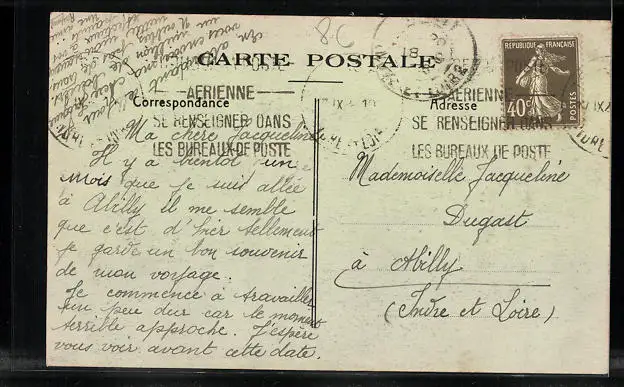 CARTE POSTALE
Correspondance
Adresse
AERIENNE
SE RENSEIGNER DANS
LES BUREAUX DE POSTE
AERIENNE
SE RENSEIGNER DANS
LES BUREAUX DE POSTE
REPUBLIQUE FRANÇAISE
40c
POSTES
8C
Ma chère Jacqueline
Il y a bientôt un
mois que je suis allée
à Abilly il me semble
que c'est d'hier tellement
je garde un bon souvenir
de mon voyage.
Je commence à travailler
un peu dur car le moment
terrible approche. J'espère
vous voir avant cette date.
Mademoiselle Jacqueline
Dugast
à Abilly
(Indre et Loire)